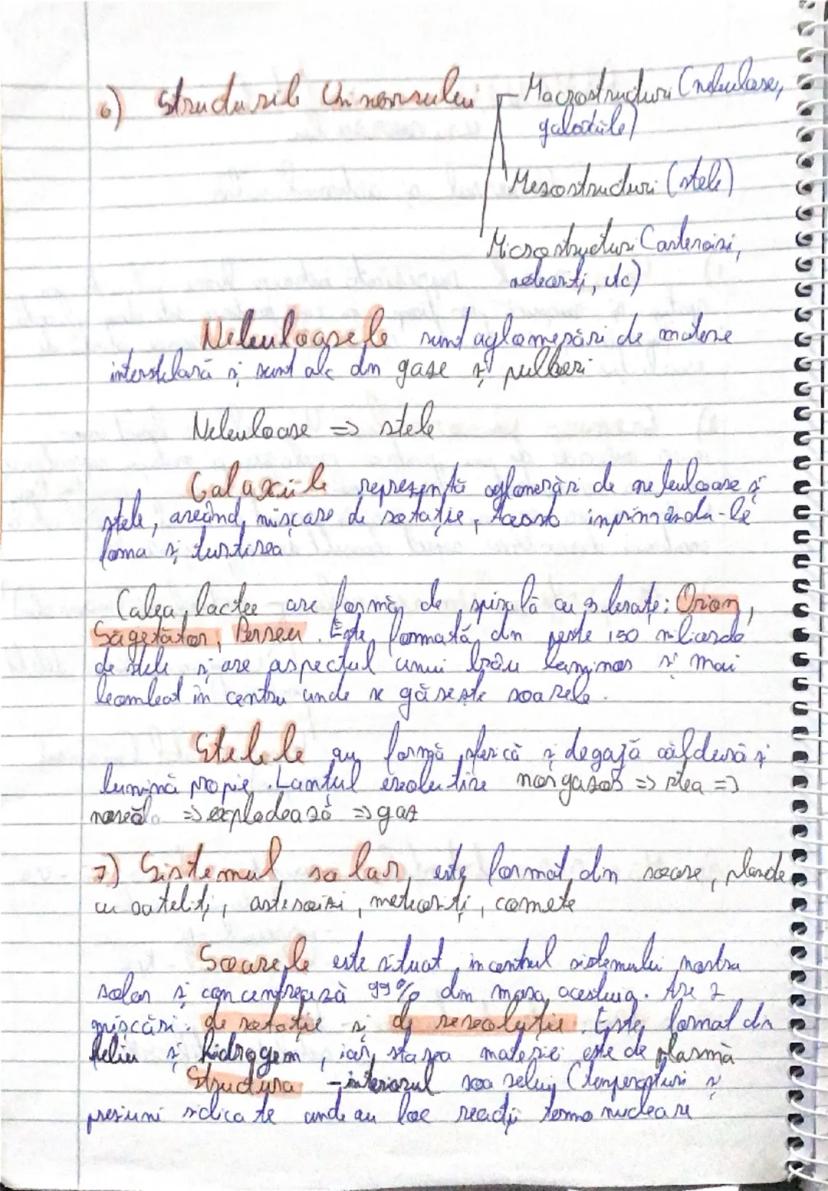 6) Structurile Universului
Macrostructuri (nebuloase,
galaxiile)
Mezostructuri (stele)
Microstructuri (asteroizi,
meteoriți, etc)
Nebuloasele sunt aglomerări de materie
interstelară și sunt alc din gaze și pulberi
Nebuloase => stele
Galaxiile reprezintă aglomerări de nebuloase și
stele, areând mișcare de rotație, aceasta imprimându-le
forma și turtirea
Calea lactee are formă de spirală cu 3 brațe: Orion,
Săgetător, Perseu. Este formată din peste 150 miliarde
de stele și are aspectul unui brâu luminos și mai
bombat în centru unde se găsește soarele.
Stelele au formă sferică și degajă căldură și
lumină proprie. Lanțul evolutive nor gazos => stea =>
=> explodează => gaz
7) Sistemul solar este format din soare, planete
cu sateliți, asteroizi, meteoriți, comete
Soarele este situat in centrul sistemului nostru
solar și concentrează 99% din masa acestuia. Are 2
mișcări. de rotație și de revoluție. Este format din
heliu și hidrogem, iar starea materiei este de plasmă
Structura - interiorul soarelui (temperaturi și
presiuni ridicate unde au loc reacții termonucleare